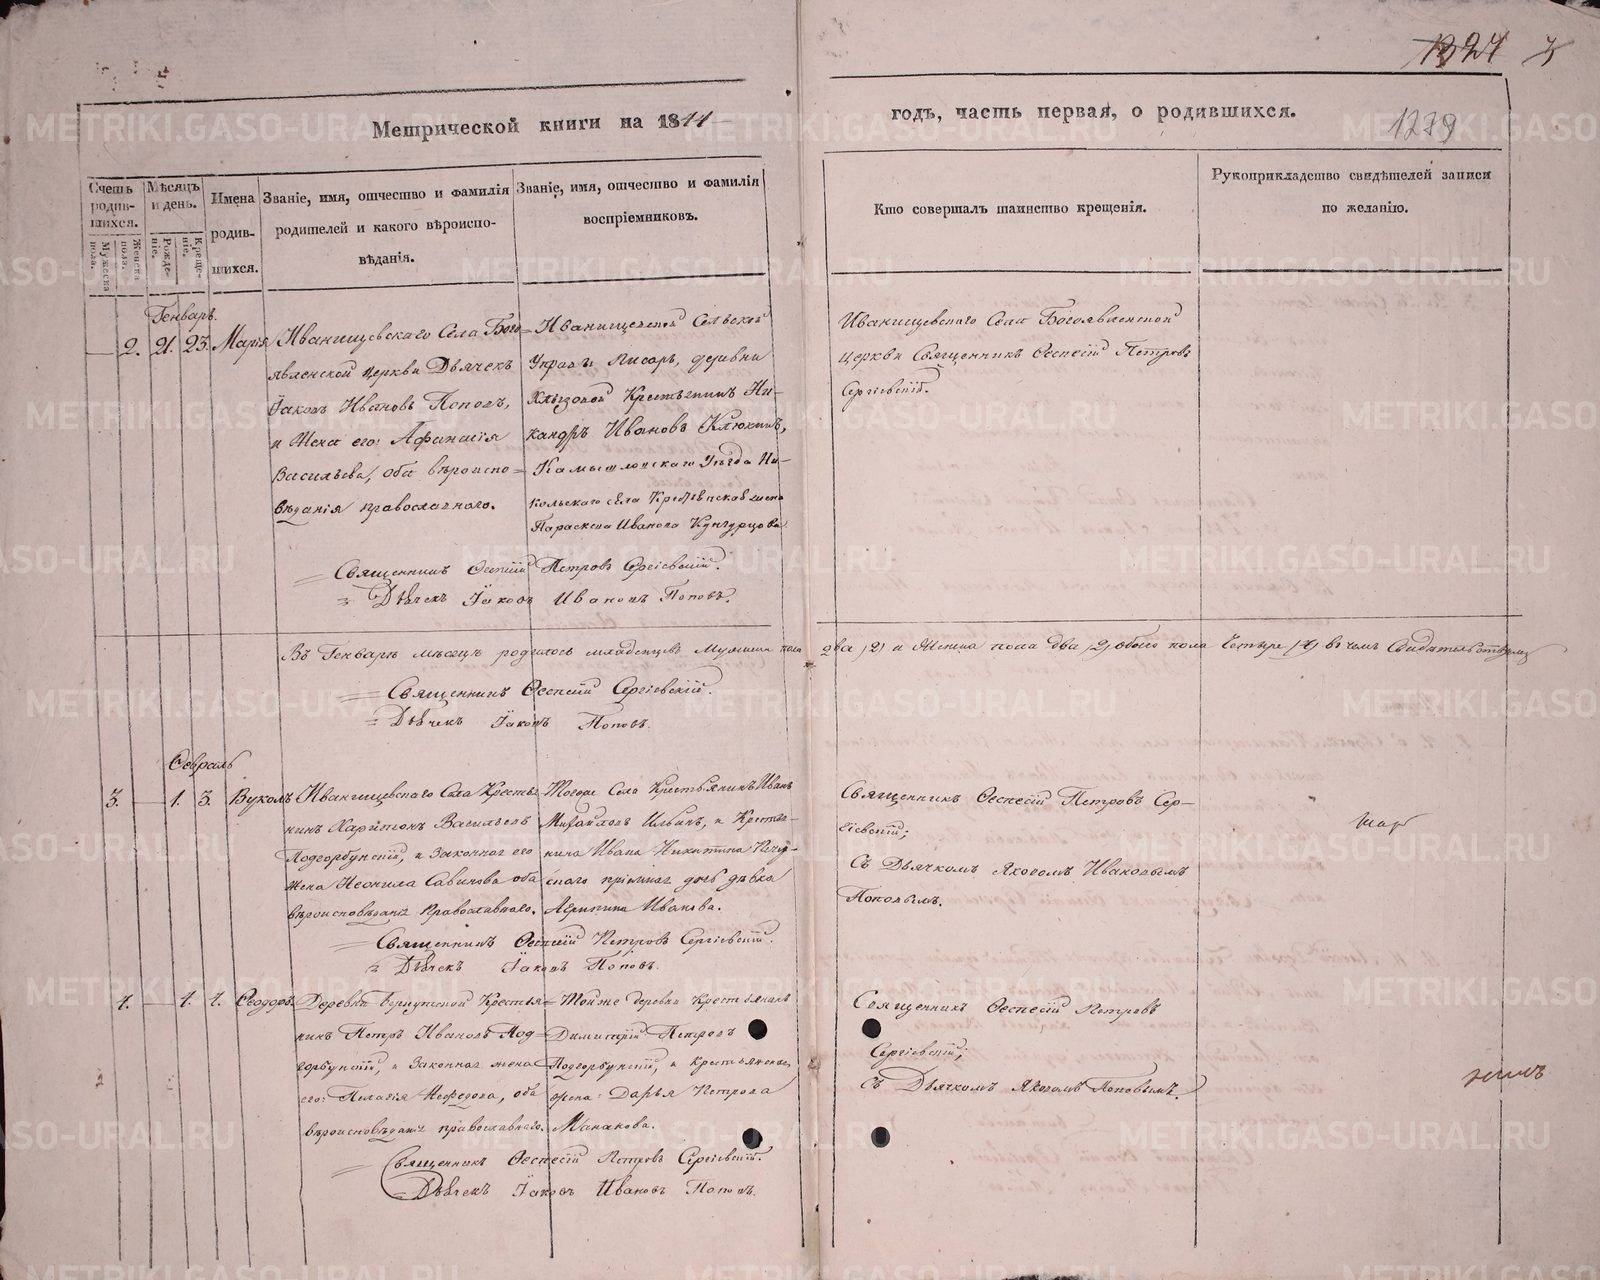 1324
Метрической книги на 1844
годъ, часть первая, о родившихся.
1279
Счетъ родившихся.
Мужеска пола.
Женска пола.
Мѣсяцъ и день.
Рожденіе.
Крещеніе.
Имена родившихся.
Званіе, имя, отчество и фамилія
родителей и какого вѣроиспо-
вѣданія.
Званіе, имя, отчество и фамилія
воспріемниковъ.
Кто совершалъ таинство крещенія.
Рукоприкладство свидѣтелей записи
по желанію.
Генварь.
2. 21. 23. Марія
Иванищевскаго Села Бого=
явленской церкви Дьячекъ
Іаковъ Ивановъ Поповъ,
и Жена его: Афанасія
Васильева, оба вѣроиспо=
вѣданія православнаго.
Иванищевской Сельской
Управы Писарь, деревни
Хлызовой Крестьянинъ Ни-
кандръ Ивановъ Клюкинъ,
Камышловскаго Уѣзда Ни-
кольскаго села Крестьянская жена
Параскева Иванова Кунгурцова
Иванищевскаго Села Богоявленской
церкви Священникъ Петровъ
Сергіевскій.
Священникъ Петровъ Сергіевскій.
Дьячекъ Іаковъ Ивановъ Поповъ.
Въ Генварѣ мѣсяцѣ родилось младенцовъ Мужеска пола два /2/ и Женска пола два /2/ обоего пола Четыре /4/ въ чемъ Свидѣтельствуемъ
Священникъ Сергіевскій.
Дьячекъ Іаковъ Поповъ.
Февраль
3. 1. 3. Вуколъ
Иванищевскаго Села Крестья
нинъ Харитонъ Васильевъ
Подгорбунскій, и Законная его
Жена Неонила Савинова оба
вѣроисповѣданія Православнаго.
Тогоже Села Крестьянинъ Иванъ
Михайловъ Ильинъ, и Крестья-
нина Ивана Никитина
скаго пріемная дочь дѣвка
Агрипина Иванова.
Священникъ Петровъ Сер-
гіевскій;
Съ Дьячкомъ Яковомъ Ивановымъ
Поповымъ.
Священникъ Петровъ Сергіевскій.
Дьячекъ Іаковъ Поповъ.
4. 1. 4. Феодоръ.
Деревни Крестья=
нинъ Петръ Ивановъ Под=
горбунскій, и Законная жена
его: Пелагія Нефедова, оба
вѣроисповѣданія православнаго.
Тойже деревни Крестьянинъ
Димитрій Петровъ
Подгорбунскій, и Крестьянская
жена: Дарья Петрова
Манакова.
Священникъ Петровъ
Сергіевскій;
съ Дьячкомъ Яковомъ Поповымъ.
Священникъ Петровъ Сергіевскій.
Дьячекъ Іаковъ Ивановъ Поповъ.
METRIKI.GASO-URAL.RU